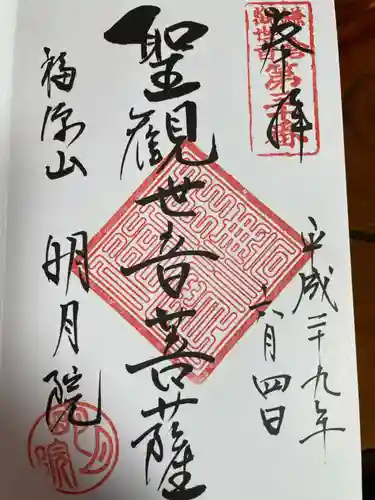 奉拝
平成二十九年
六月四日
聖觀世音菩薩
福源山
明月院